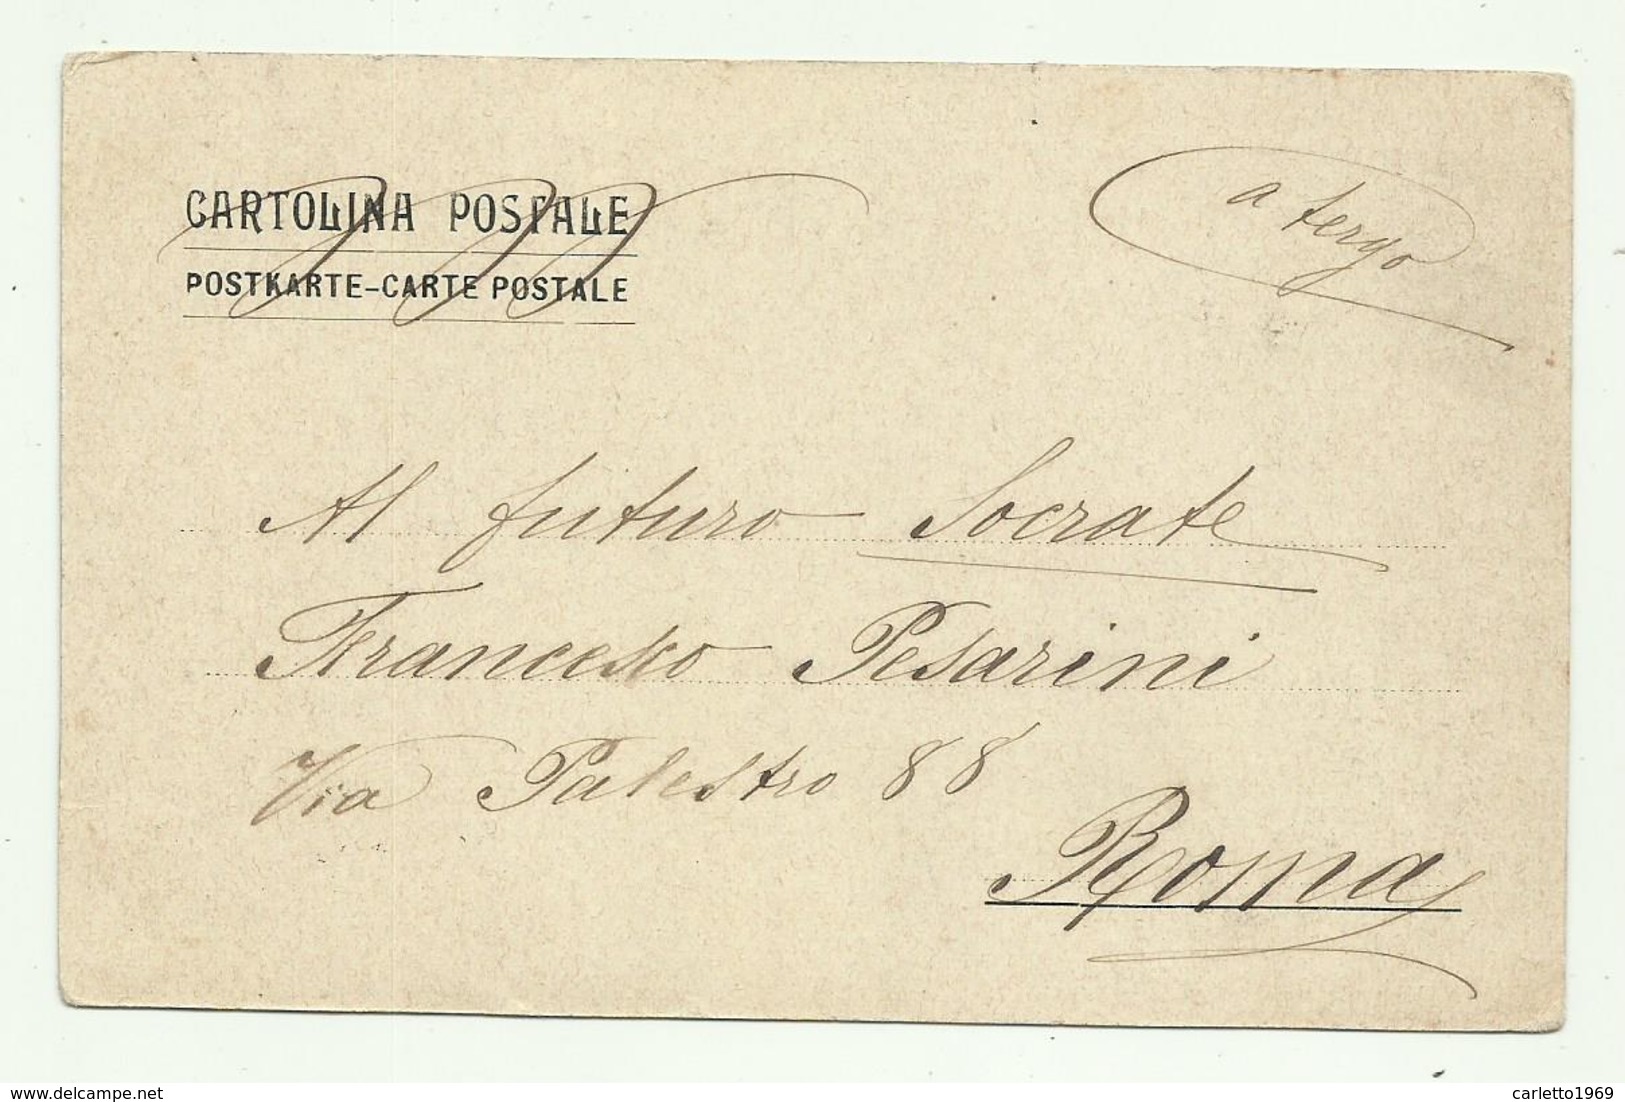 CARTOLINA POSTALE
POSTKARTE-CARTE POSTALE
a tergo
Al futuro Socrate
Francesco Pesarini
Via Palestro 88
Roma
www.delcampe.net
carletto1969